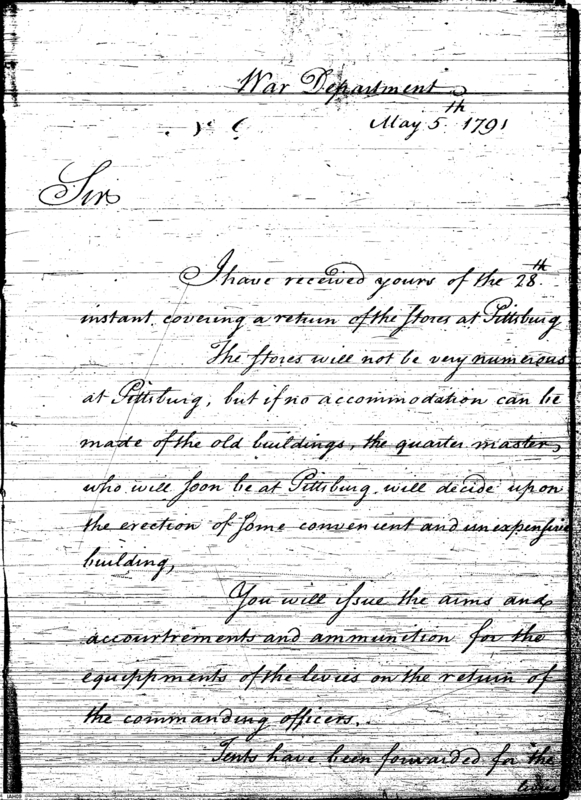 War Department
May 5th 1791
Sir
I have received yours of the 28th
instant covering a return of the stores at Pittsburg
The stores will not be very numerous
at Pittsburg, but if no accommodation can be
made of the old buildings, the quarter master,
who will soon be at Pittsburg will decide upon
the erection of some convenient and unexpensive
building,
You will issue the arms and
accourtrements and ammunition for the
equippments of the levies on the return of
the commanding officers.
Tents have been forwarded for the